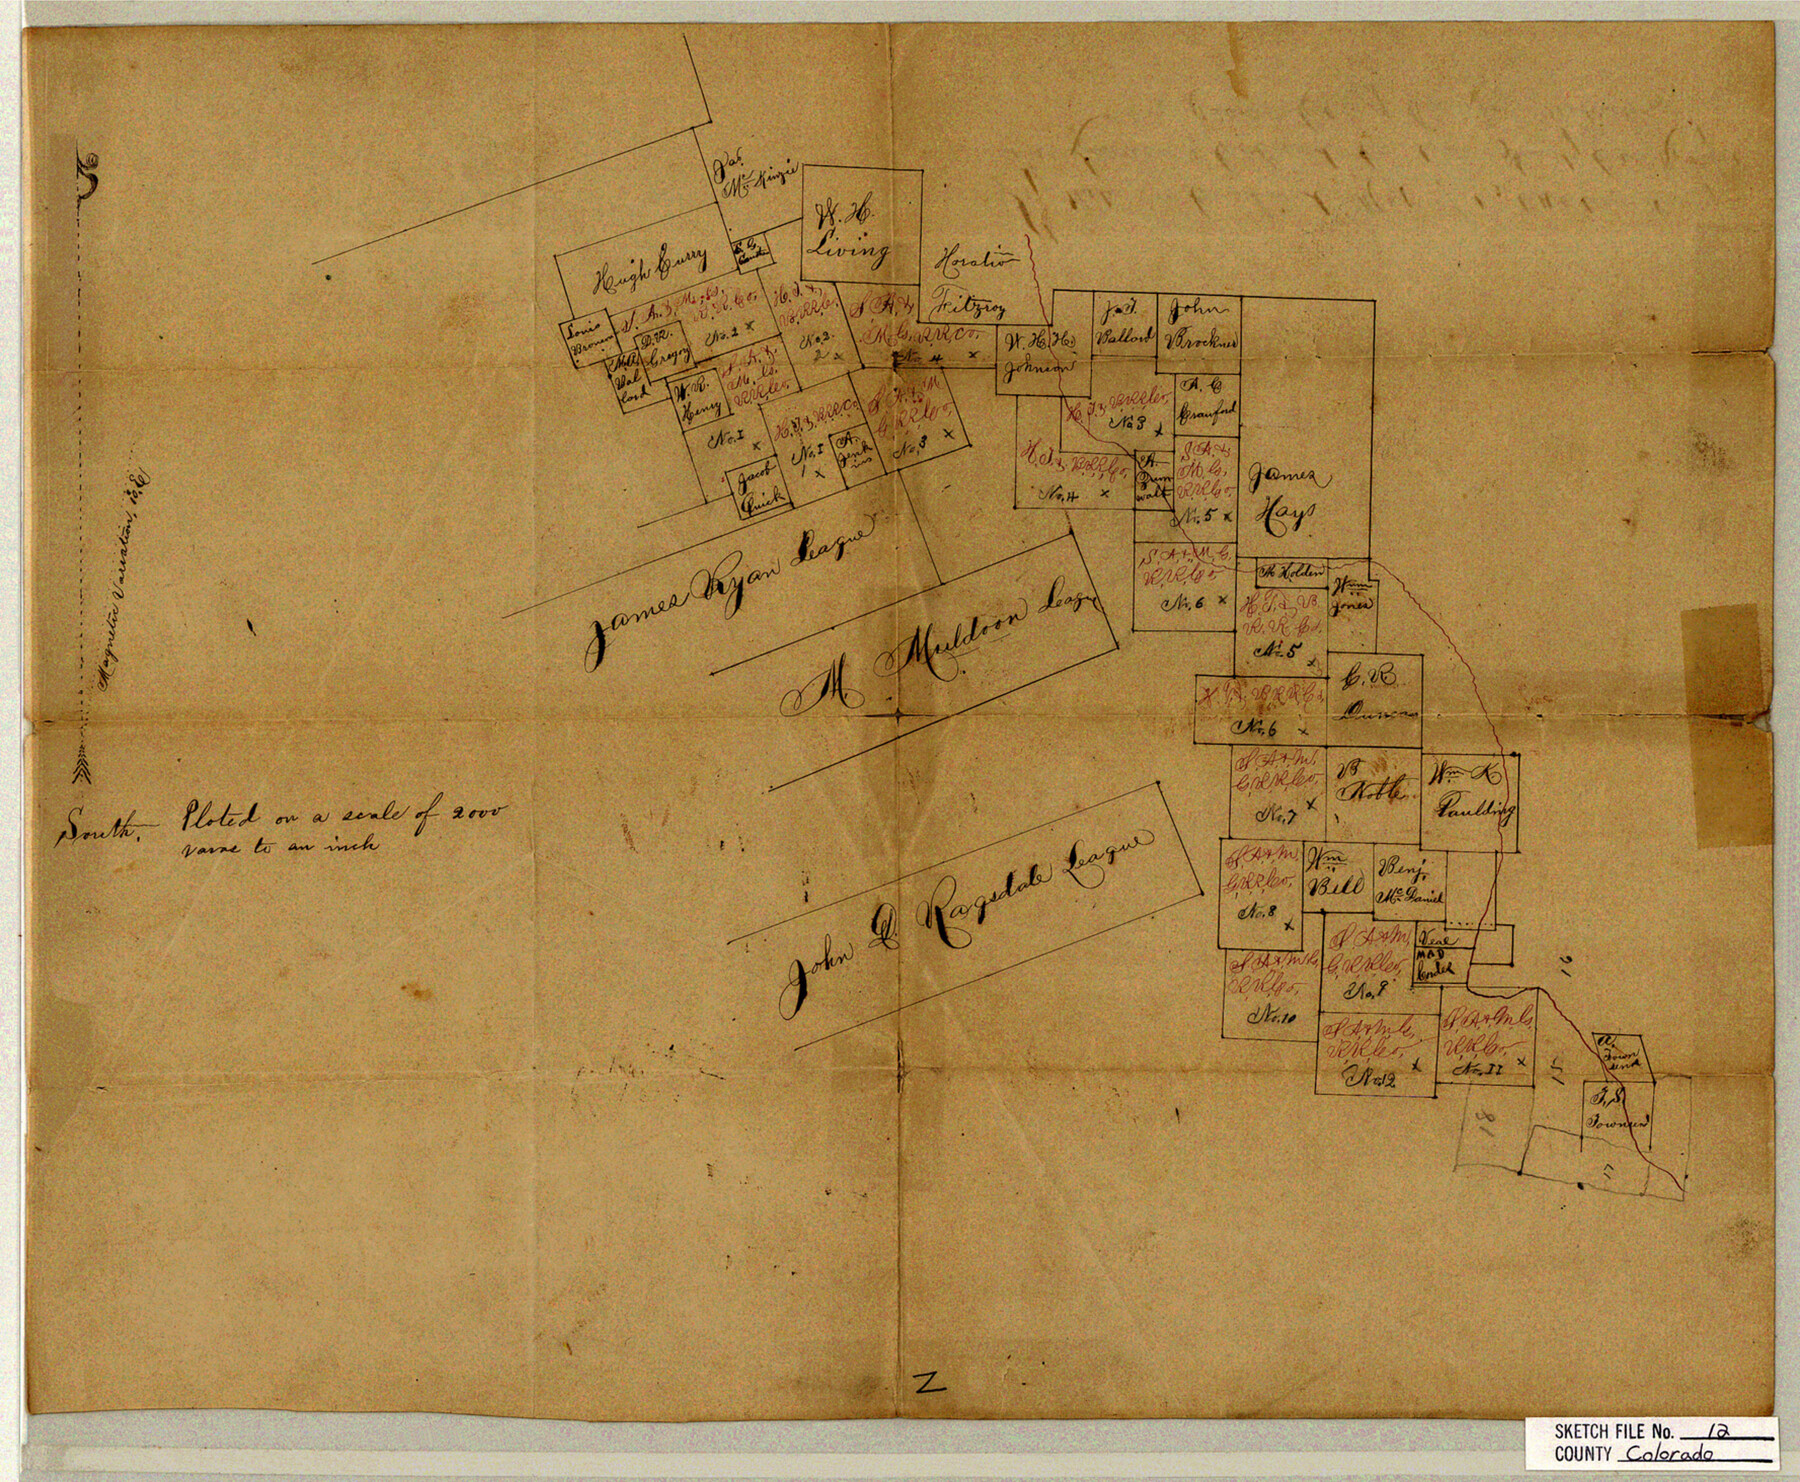 Jas.
Mc Kinzie
W. H.
Living
Hugh Curry
Horatio
Fitzroy
Louis
D.R.
Gregory
No. 2 x
H. T. &
No. 2.
2 x
S. A. &
M. G. R.R. Co.
No. 4 x
W. H. H.
Johnson
J. T.
Ballard
John
Brockner
W. R.
Henry
S. A. &
M. G.
R.R. Co.
No. I
x
H. T. & B.R.R. Co.
No. 1
1 x
A.
Jenk
ins
S. A. & M
G. R.R. Co.
No. 3 x
Jacob
Quick
H. T. & B.R.R. Co.
No 3 x
A. C
Crawford
H. T. & B.R.R. Co.
No. 4 x
A.
walt
S. A. &
M. G.
R.R. Co.
No. 5 x
James
Hays
James Ryan League
M Muldoon League
S. A. & M. G.
R.R. Co.
No. 6 x
M Holden
Wm
Jones
H. T. & B.
R. R. Co.
No. 5
x
C. B
Duncan
H. T. & B.R.R. Co.
No. 6 x
S. A. & M.
G. R.R. Co.
No. 7 x
B
Noble
Wm K
Paulding
Magnetic Variation,
South.
Ploted on a scale of 2000
varas to an inch
John D. Ragsdale League
S. A & M.
G. R.R. Co.
No. 8
x
Wm
Bell
Benj.
Mc Daniel
S. A & M.
G. R.R. Co.
No. 9
Veal
S. A & M. G.
R.R. Co.
No. 10
S. A & M. G.
R.R. Co.
No. 12 x
S. A & M. G.
R.R. Co.
No. 11 x
A.
Town
send
T. S.
Townsend
Z
SKETCH FILE No. 12
COUNTY Colorado